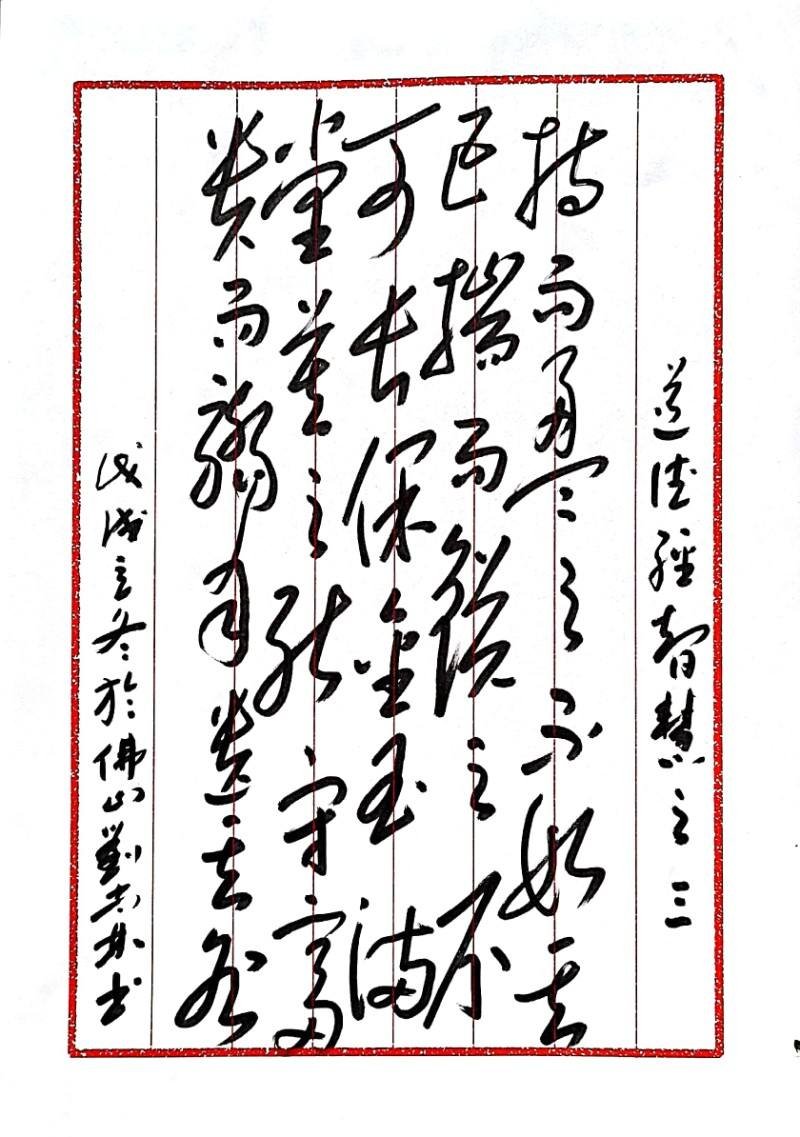 道德經智慧之三
持而盈之不如其
已揣而銳之不
可長保金玉滿
堂莫之能守富
貴而驕自遺其咎
戊戌立冬於佛山劉林书